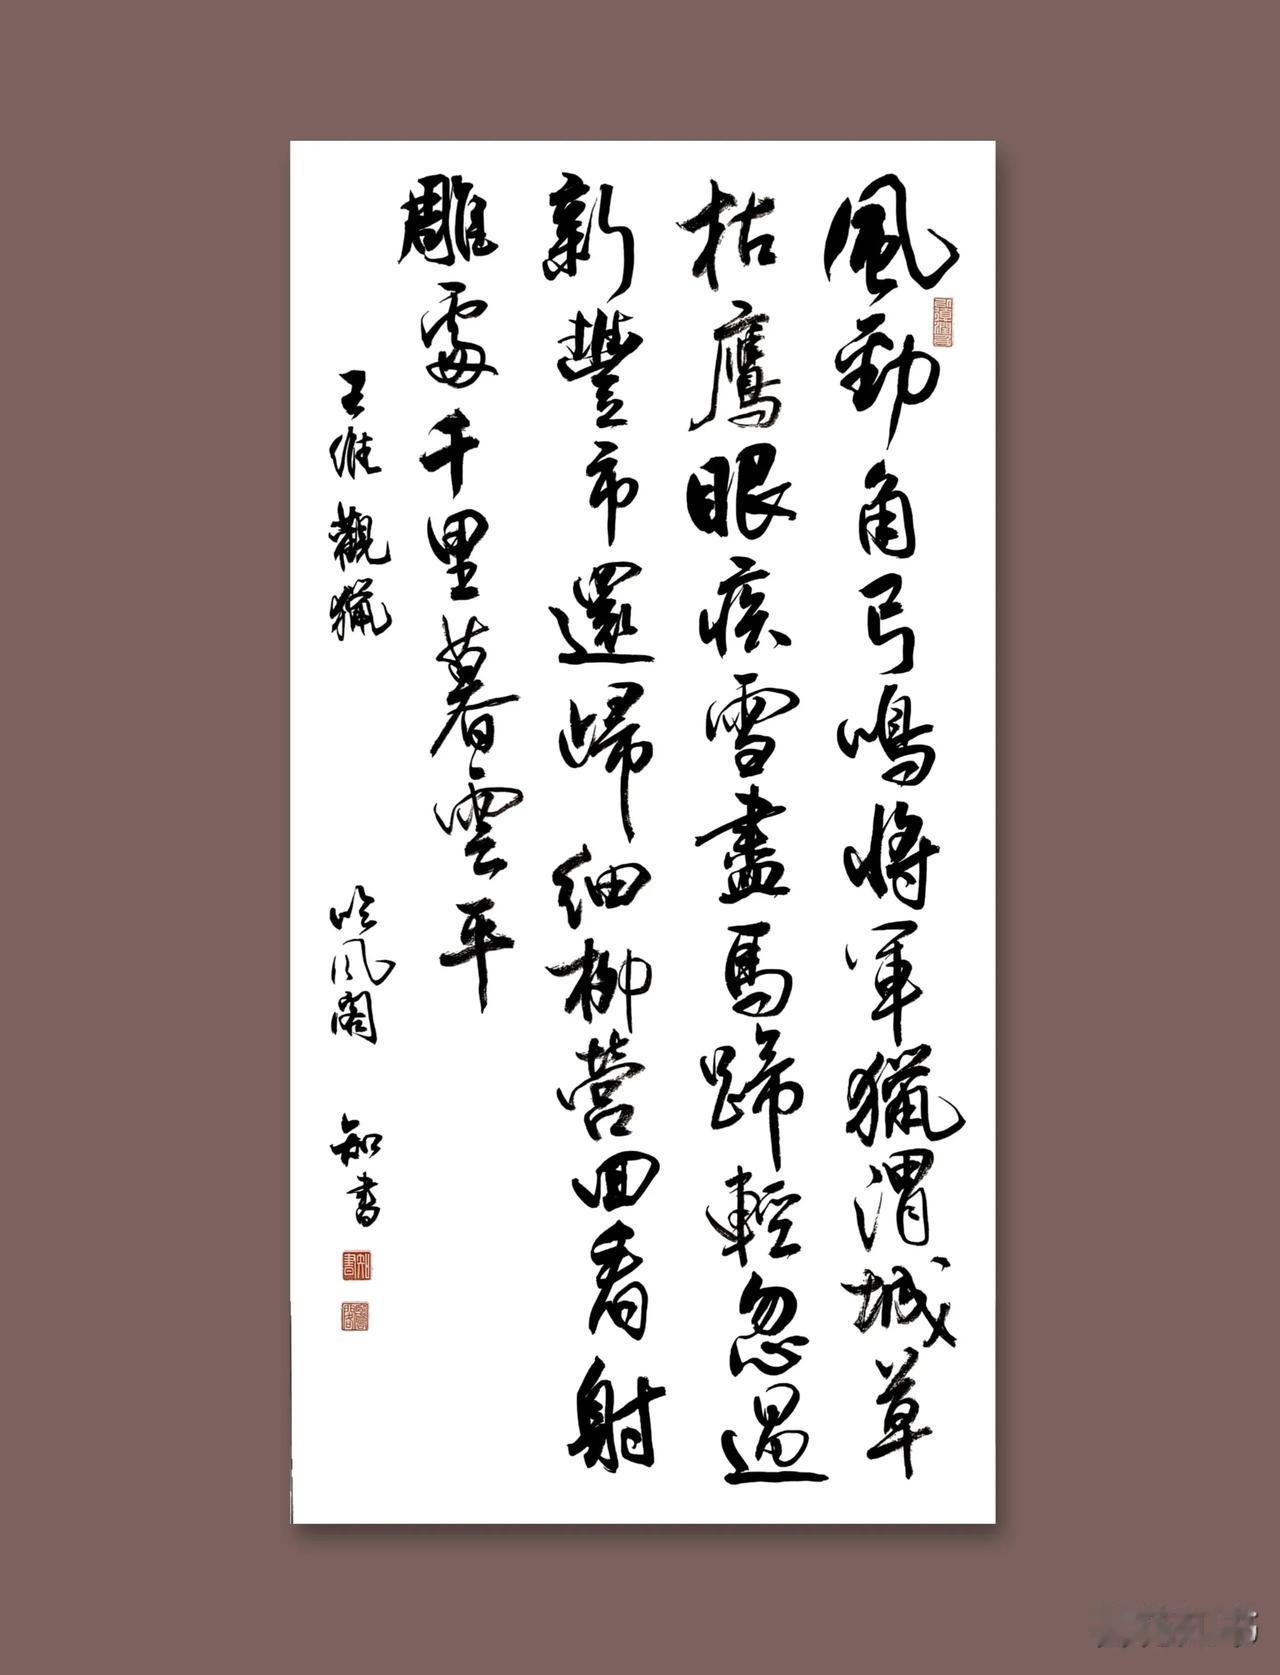 風勁角弓鳴將軍獵渭城草
枯鷹眼疾雪盡馬蹄輕忽過
新豐市還歸細柳營回看射
雕處千里暮雲平
王維觀獵
吟風閣
知書